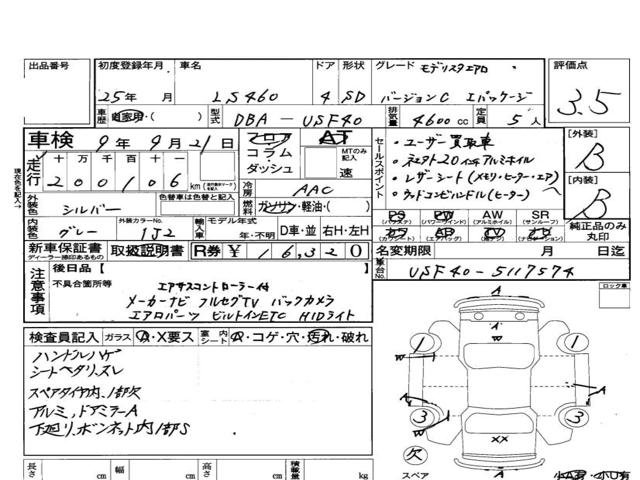 出品番号
初度登録年月 車名 ドア 形状 グレード モデリスタエアロ 評価点
25年 月 LS460 4 SD バージョンC Iパッケージ 3.5
車歴 自家用・( ) 型式 DBA-USF40 排気量 4600cc 定員 5人
車検 9年 9月 21日 フロア AT
コラム MTのみ記入
ダッシュ 速
走行 十 万 千 百 十
200106 km
現在色を記入→
冷房 AAC
燃料 ガソリン・軽油・( )
外装色 シルバー 色替車は色替と記入
内装色 グレー 外装カラーNo. 1J2 輸入車 モデル年式 年・不明 D車・並 右H・左H
セールスポイント
・ユーザー買取車
・社外20インチアルミホイル
・レザーシート(メモリ・ヒーター・エア)
・ウッドコンビハンドル(ヒーター)
[外装] B
[内装] B
PS PW AW SR
(パワステ) (パワーウインド) (アルミホイル) (サンルーフ)
カワ エアB TV ナビ
(カワシート) (エアバッグ) (ナビゲーション)
純正品のみ丸印
新車保証書 取扱説明書 R券 ¥16,320
ディーラー捺印あるもの
名変期限 月 日迄
注意事項 後日品【 】
不具合箇所等
エアサスコントローラー付
メーカーナビ フルセグTV バックカメラ
エアロパーツ ビルトインETC HIDライト
車台No. USF40-5117574
ロック車
検査員記入 ガラス A・X要ス 室内シート A・コゲ・穴・汚れ・破れ
ハンドルハゲ
シートヘタリ、スレ
スペアタイヤ内、1部欠
アルミ、ドアミラーA
下廻り、ボンネット内1部S
A
A
W
1
1
W
A
A
3
3
XX
A
欠
スペア 小A有・小U有
長さ cm 幅 cm 高さ cm 積載量 kg